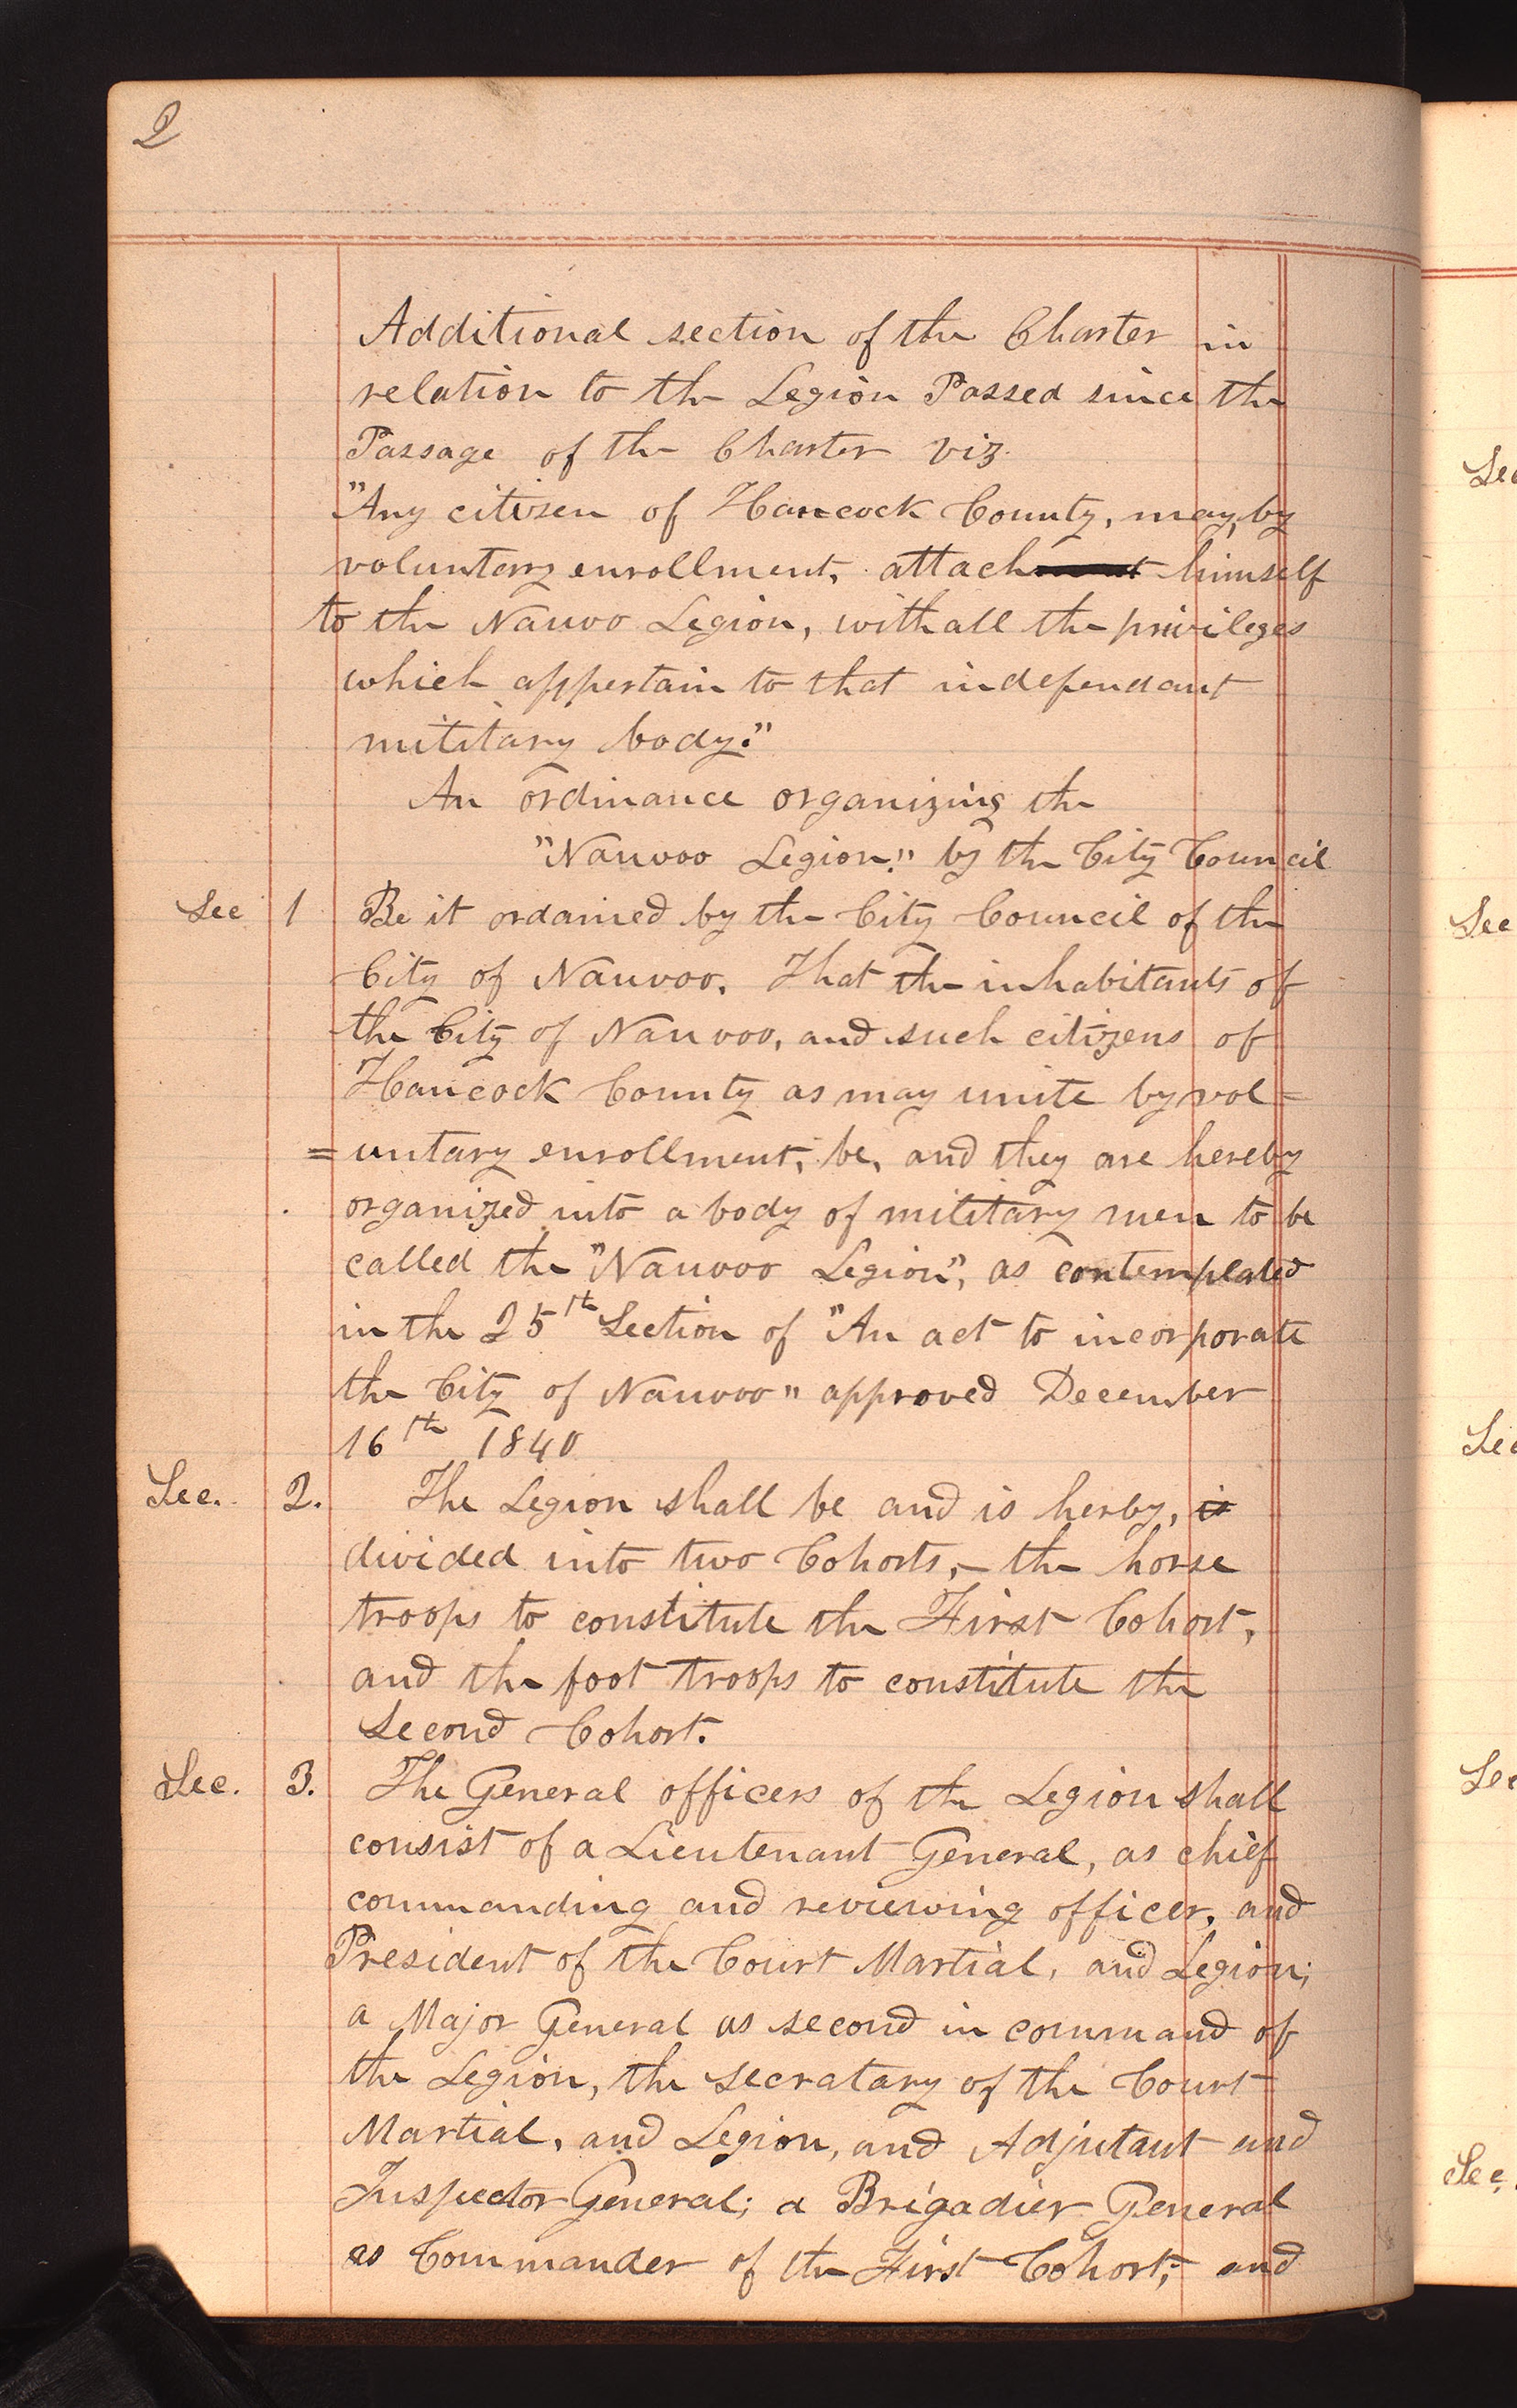 2
Additional section of the Charter in
relation to the Legion Passed since the
Passage of the Charter viz.
"Any citizen of Hancock County, may, by
voluntary enrollment, attach himself
to the Nauvoo Legion, with all the privileges
which appertain to that independant
military body."
An ordinance organizing the
"Nauvoo Legion." by the City Council
Sec 1 Be it ordained by the City Council of the
City of Nauvoo. That the inhabitants of
the City of Nauvoo, and such citizens of
Hancock County as may unite by vol=
=untary enrollment, be, and they are hereby
organized into a body of military men to be
called the "Nauvoo Legion", as contemplated
in the 25th Section of "An act to incorporate
the City of Nauvoo" approved December
16th 1840
Sec. 2. The Legion shall be and is herby, is
divided into two Cohorts,- the horse
troops to constitute the First Cohort,
and the foot troops to constitute the
Second Cohort.
Sec. 3. The General officers of the Legion shall
consist of a Lieutenant General, as chief
commanding and reviewing officer, and
President of the Court Martial, and Legion;
a Major General as second in command of
the Legion, the secratary of the Court
Martial, and Legion, and Adjutant and
Inspector General; a Brigadier General
as Commander of the First Cohort; and
Sec
Sec
Sec
Sec
Sec.